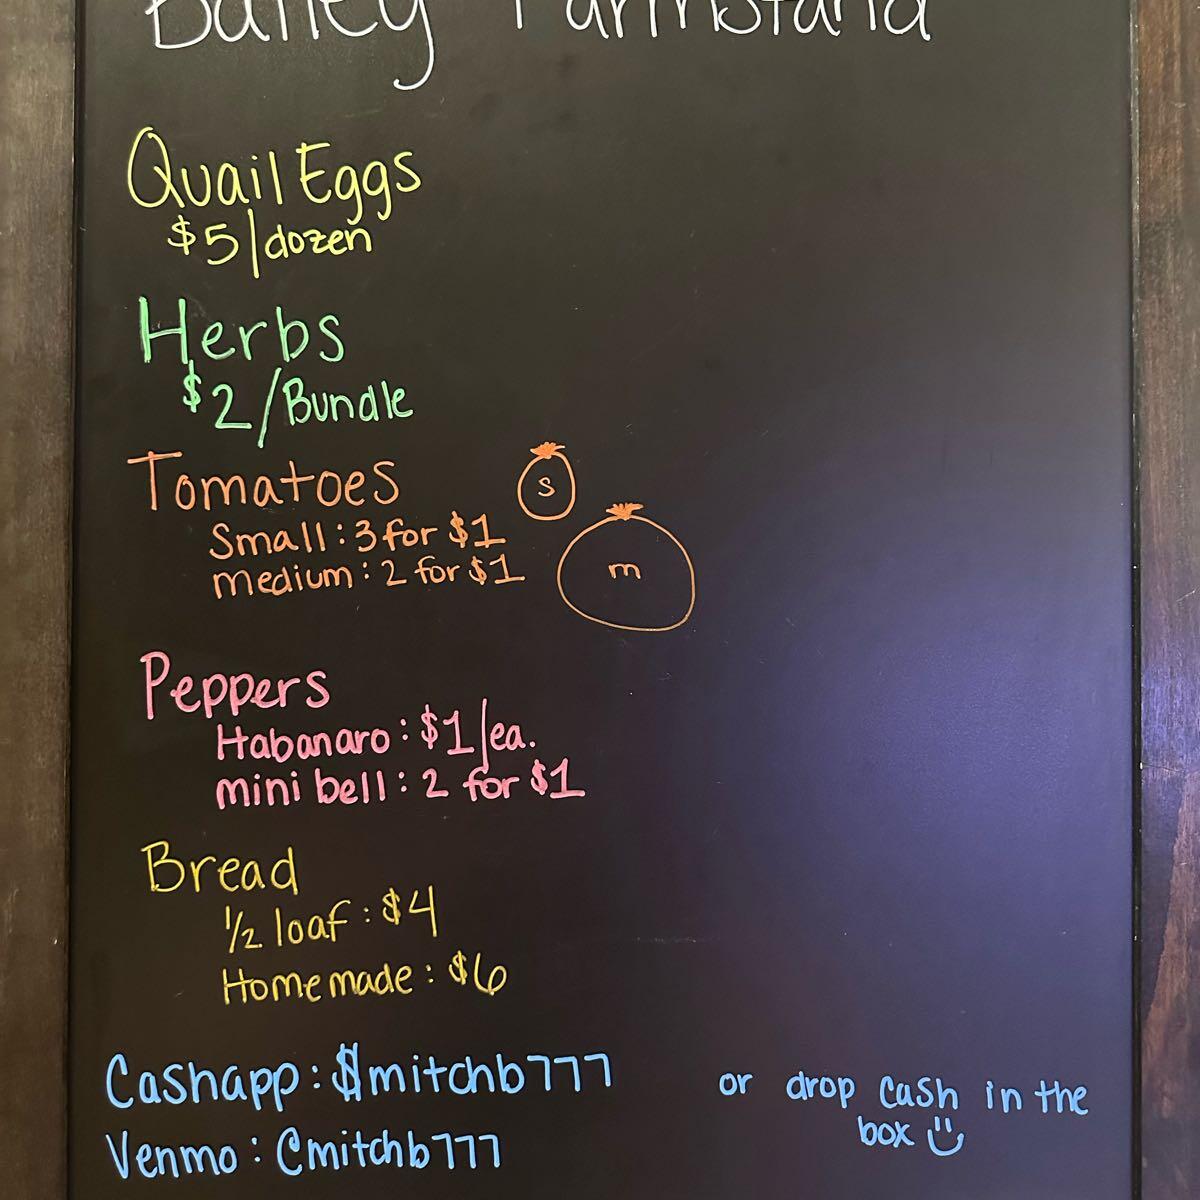 Bailey Farmstand
Quail Eggs
$5/dozen
Herbs
$2/Bundle
Tomatoes
Small: 3 for $1
medium: 2 for $1
s
m
Peppers
Habanaro: $1/ea.
mini bell: 2 for $1
Bread
1/2 loaf: $4
Homemade: $6
Cashapp: $mitchb777
Venmo: @mitchb777
or drop cash in the
box